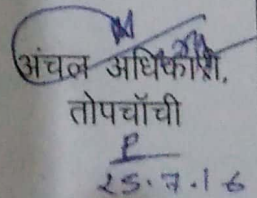 अंचल अधिकारी,
तोपचाँची
P
25.7.16